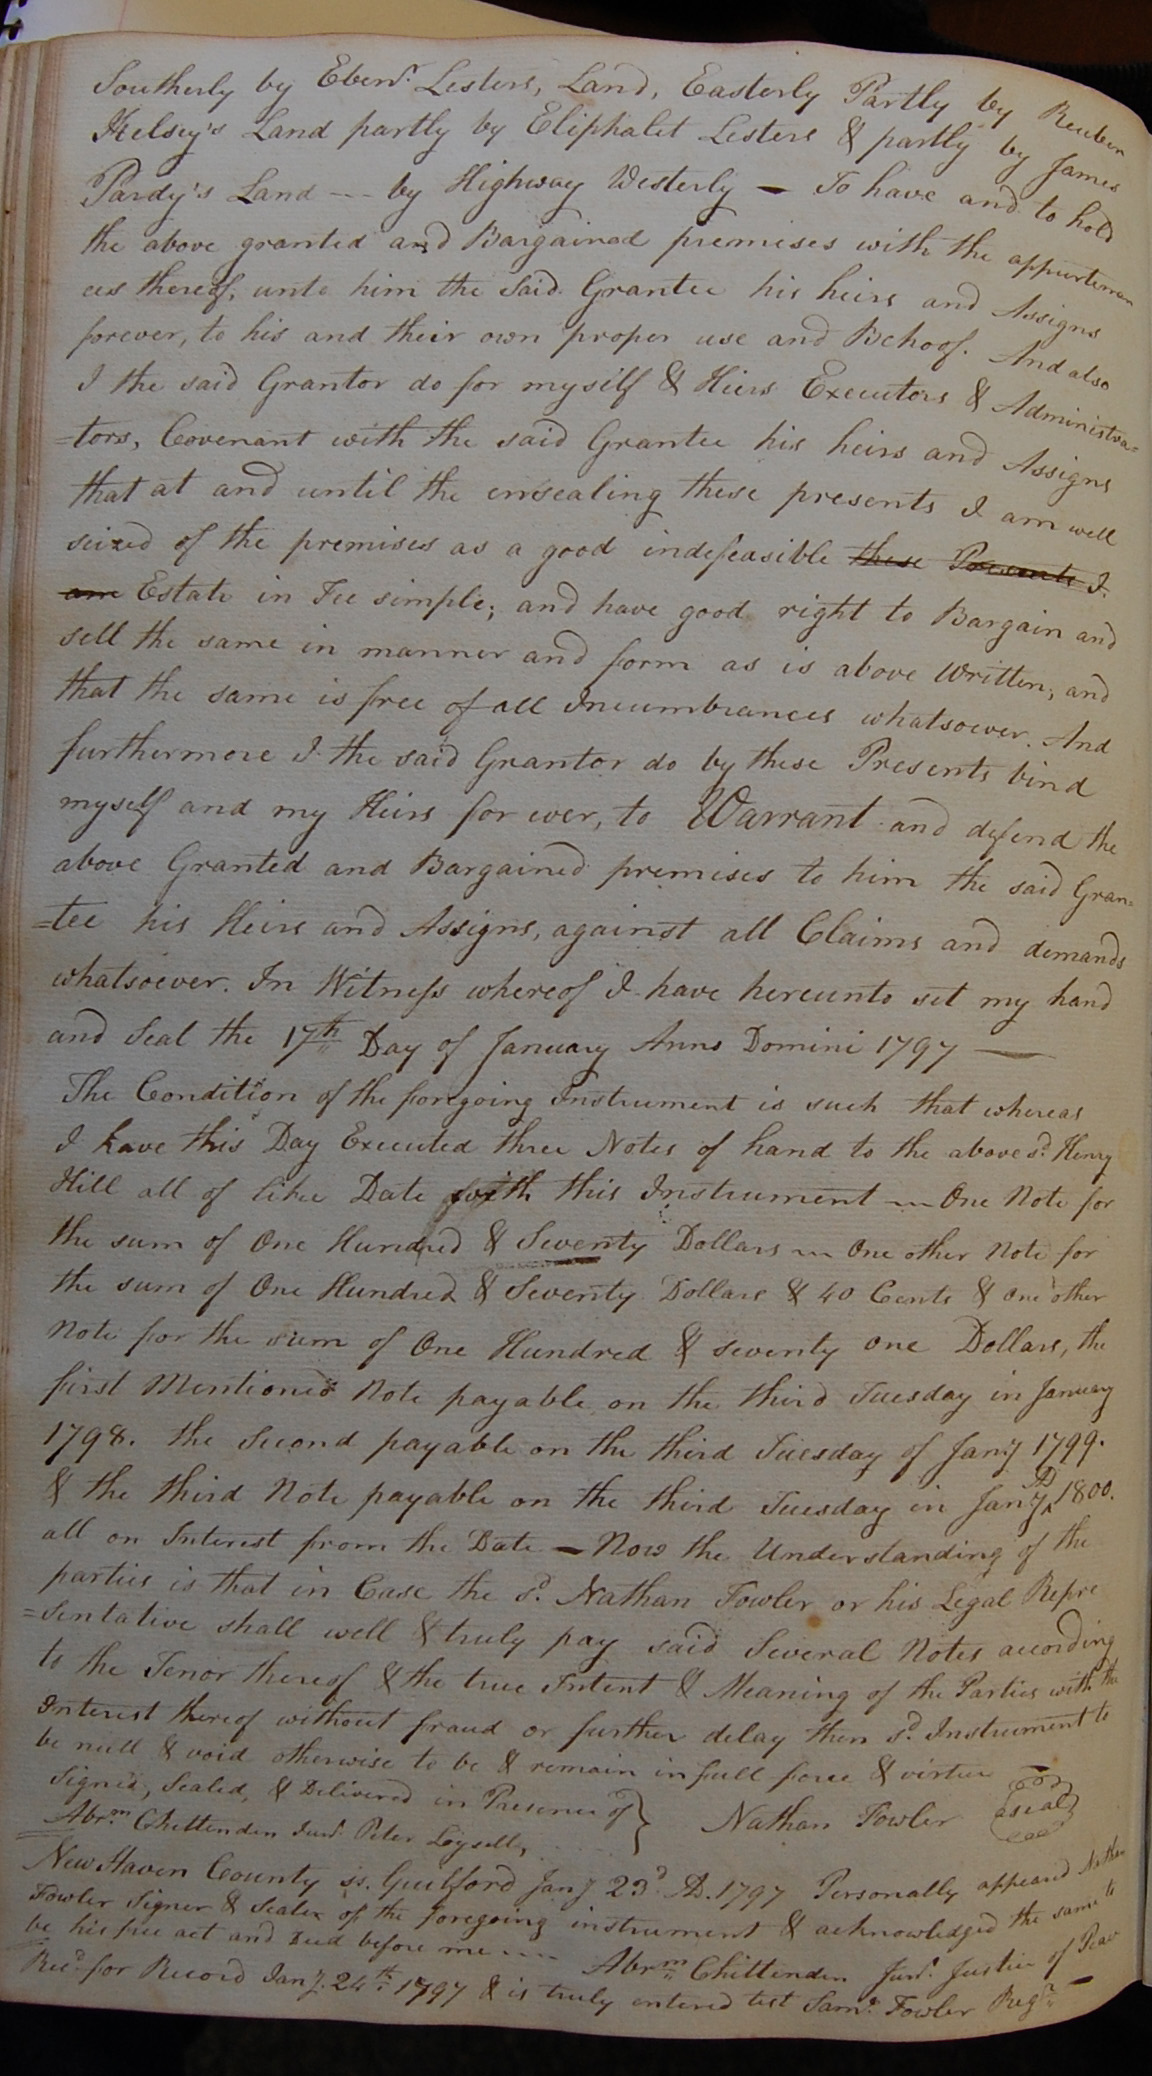 Southerly by Ebenr. Lesters, Land, Easterly Partly by Reuben
Kelsey's Land partly by Eliphalet Lesters & partly by James
Pardy's Land --- by Highway Westerly — To have and to hold
the above granted and Bargained premises with the appurtenan
ces thereof, unto him the Said Grantee his heirs and Assigns
forever, to his and their own proper use and Behoof. And also
I the said Grantor do for myself & Hiers Executors & Administra=
=tors, Covenant with the said Grantee his heirs and Assigns
that at and until the ensealing these presents I am well
seized of the premises as a good indefeasible these Presents I
am Estate in Fee simple; and have good right to Bargain and
sell the same in manner and form as is above Written; and
that the same is free of all Incumbrances whatsoever. And
furthermore I the said Grantor do by these Presents bind
myself and my Heirs for ever, to Warrant and defend the
above Granted and Bargained premises to him the said Gran=
=tee his Heirs and Assigns, against all Claims and demands
whatsoever. In Witness whereof I have hereunto set my hand
and Seal the 17th Day of January Anno Domini 1797 —
The Condition of the foregoing Instrument is such that whereas
I have this Day Executed three Notes of hand to the above sd. Henry
Hill all of like Date with this Instrument — One Note for
the sum of One Hundred & Seventy Dollars — One other Note for
the sum of One Hundred & Seventy Dollars & 40 Cents & one other
Note for the sum of One Hundred & seventy one Dollars, the
first Mentioned Note payable on the third Tuesday in January
1798. the Second payable on the third Tuesday of Jany 1799.
& the third Note payable on the third Tuesday in Jany AD 1800.
all on Interest from the Date — Now the Understanding of the
parties is that in Case the sd. Nathan Fowler or his Legal Repre
=sentative shall well & truly pay said Several Notes according
to the Tenor thereof & the true Intent & Meaning of the Parties with the
Interest thereof without fraud or further delay then sd. Instrument to
be null & void otherwise to be & remain in full force & virtue —
Signed, Sealed, & Delivered in Presence of } Nathan Fowler (seal)
Abrm Chittenden Junr. Peter
New Haven County ss. Guilford Jany 23d AD. 1797 Personally appeared Nathan
Fowler Signer & Sealer of the foregoing instrument & acknowledged the same to
be his free act and Deed before me --- Abrm Chittenden Junr. Justice of Peace
Recd for Record Jany. 24th 1797 & is truly entered test Saml. Fowler Regr. —